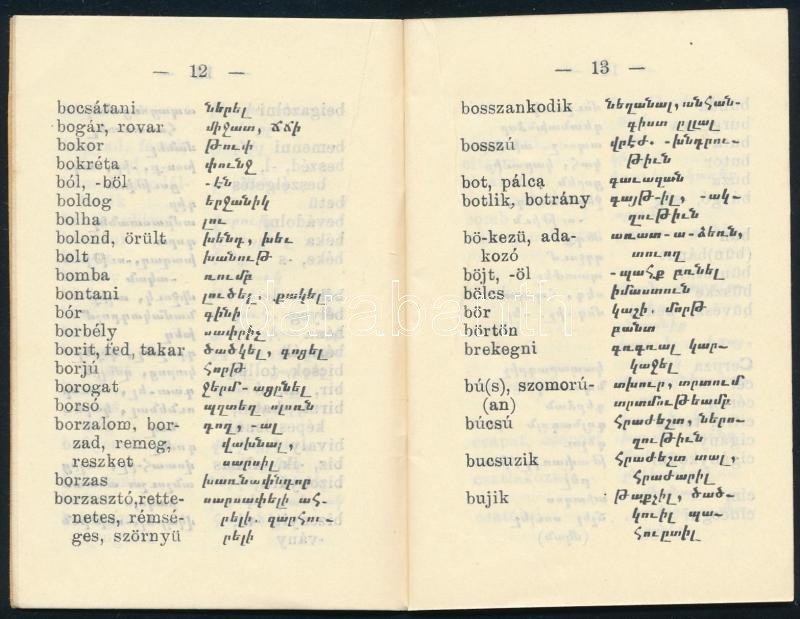 — 12 —
bocsátani ներել
bogár, rovar միջատ, ճճի
bokor թուփ
bokréta փունջ
ból, -böl -էն
boldog երջանիկ
bolha լու
bolond, örült խենդ, խեւ
bolt խանութ
bomba ռումբ
bontani լուծել, քակել
bór գինի
borbély սափրիչ
borit, fed, takar ծածկել, գոցել
borjú հորթ
borogat ջերմ-ացընել
borsó պզտիկ ոլոռն
borzalom, bor- դող, -ալ
zad, remeg, վախնալ,
reszket սարսիլ
borzas խառնափնդոր
borzasztó, rette- սարսափելի ահ-
netes, rémsé- րելի. զարհու-
ges, szörnyü րելի
— 13 —
bosszankodik նեղանալ, անհան-
գիստ ըլլալ
bosszú վրէժ. -խնդրու-
թիւն
bot, pálca գաւազան
botlik, botrány գայթ-իլ, -ակ-
ղութիւն
bö-kezü, ada- առատ-ա-ձեռն,
kozó տուող
böjt, -öl -պահք բռնել
bölcs իմաստուն
bör կաշի. մորթ
börtön բանտ
brekegni գռգռալ կար-
կաջել
bú(s), szomorú- տխուր, տրտում,
(an) տրտմութեամբ
búcsú հրաժեշտ, ներո-
ղութիւն
bucsuzik հրաժեշտ տալ,
հրաժարիլ
bujik թաքչիլ, ծած-
կուիլ պա-
հուըտիլ
darabanth